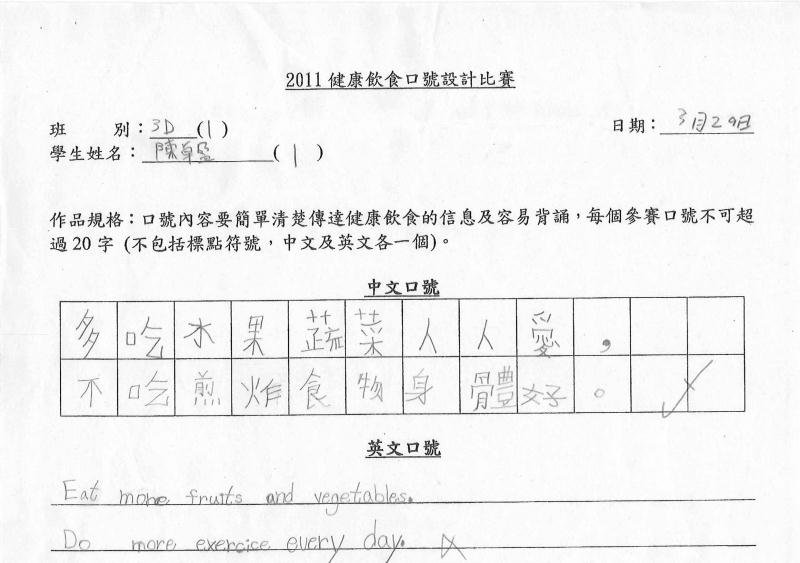 2011 健康飲食口號設計比賽
班 別：3D (1)
日期：3月29日
學生姓名：陳卓盈 (1)
作品規格：口號內容要簡單清楚傳達健康飲食的信息及容易背誦，每個參賽口號不可超
過 20 字 (不包括標點符號，中文及英文各一個)。
中文口號
多吃水果蔬菜人人愛，
不吃煎炸食物身體好。
英文口號
Eat more fruits and vegetables.
Do more exercice every day.